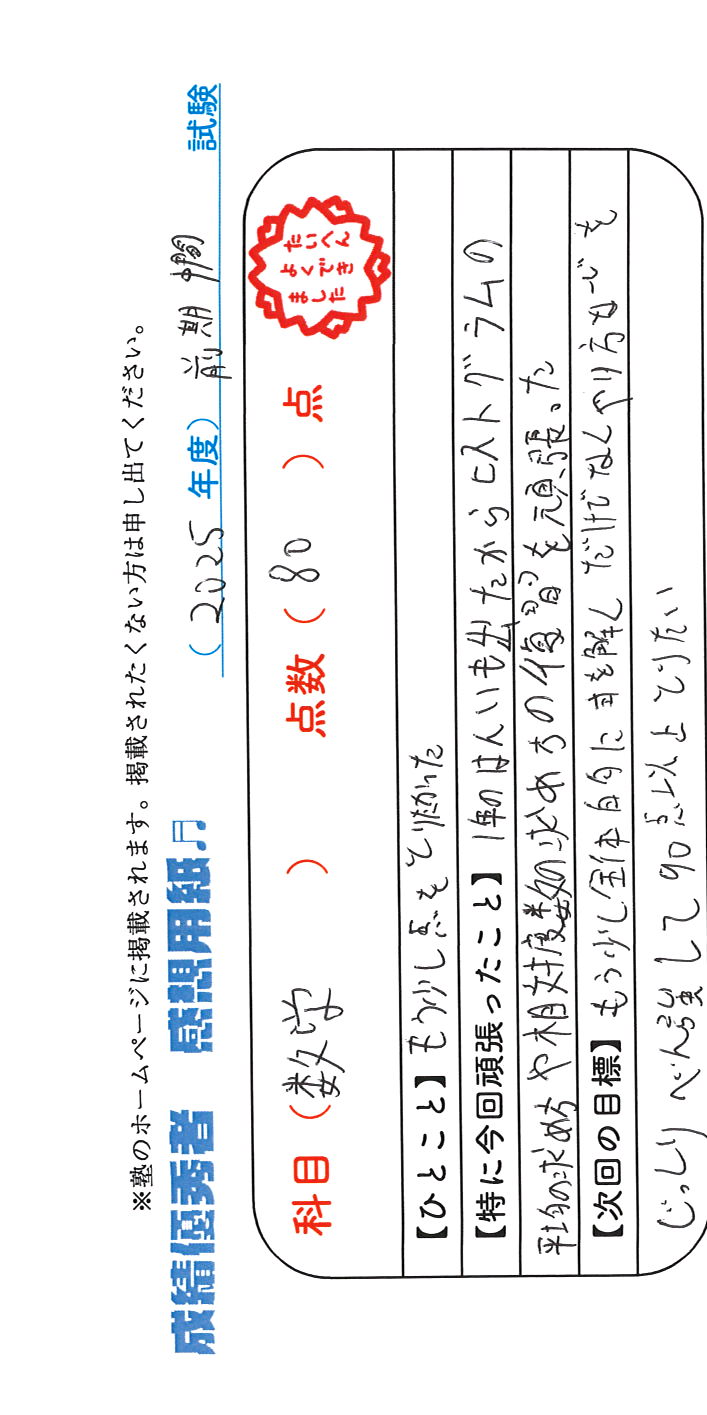 ※塾のホームページに掲載されます。掲載されたくない方は申し出てください。
成績優秀者 感想用紙♬
(2025年度)前期中間 試験
科目(数学) 点数(80)点
たいへん
よくでき
ました
【ひとこと】もう少し点をとりたかった
【特に今回頑張ったこと】1年のはんいも出たからヒストグラムの
平均の求め方や相対度数の求め方の復習を頑張った
【次回の目標】もう少し全体的に を解くだけでなくやり方などを
じっくりべん強して90点以上とりたい